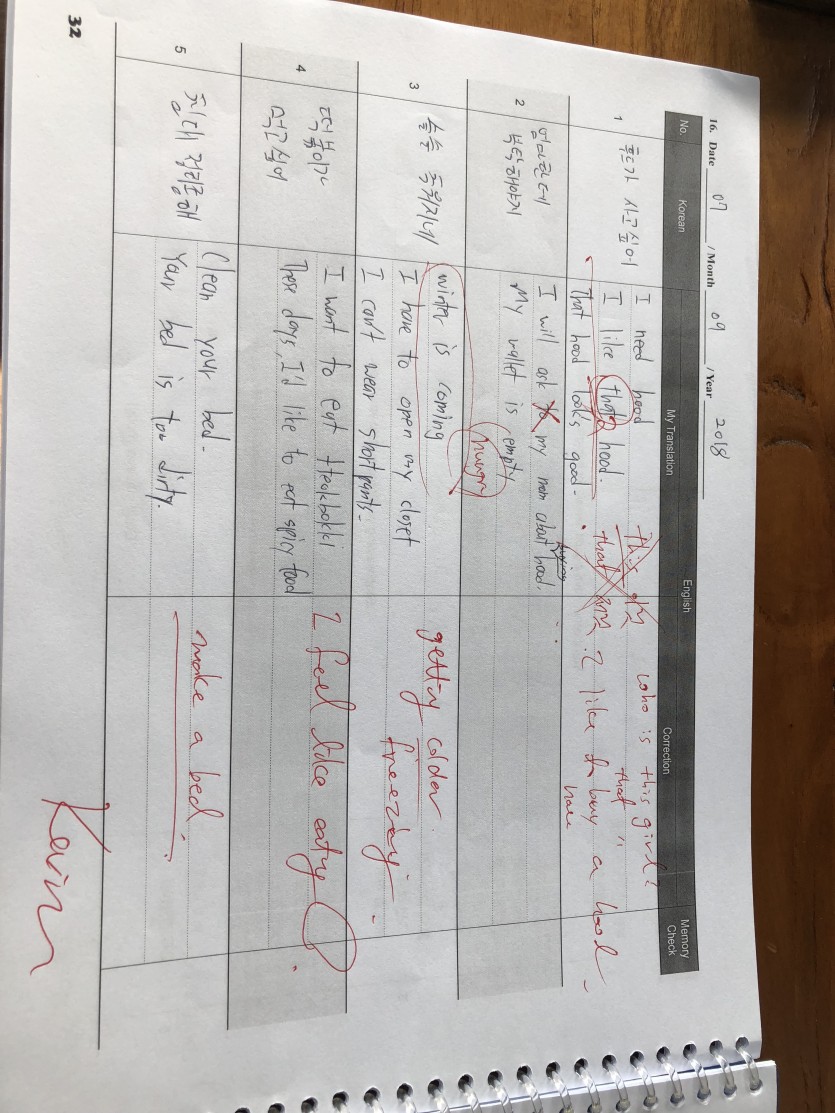 16. Date 07 / Month 09 / Year 2018
No. Korean My Translation English Correction Memory Check
1
후드가 사고싶어
I need hood
I like that hood.
That hood looks good.
who is this girl?
that "
이것
I like to buy a hood
have
2
엄마한테
부탁해야지
I will ask to my mom about buying hood.
My wallet is empty
hungry
3
슬슬 추워지네
winter is coming
I have to open my closet
I can't wear short pants.
getty colder.
freezing
4
떡볶이가
먹고싶어
I want to eat tteokbokki
These days, I'd like to eat spicy food
I feel like eaty
5
침대 정리좀해
Clean your bed.
Your bed is too dirty.
make a bed.
Kevin
32